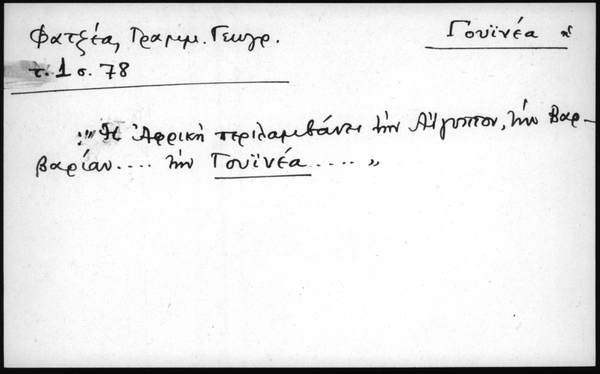 Φατζέα, Γραμμ. Γεωγρ.
Γουϊνέα ἡ
τ. 1 σ. 78
"Ἡ Ἀφρική περιλαμβάνει τήν Αἴγυπτον, τήν Βαρ-
βαρίαν.... τήν Γουϊνέα .... "